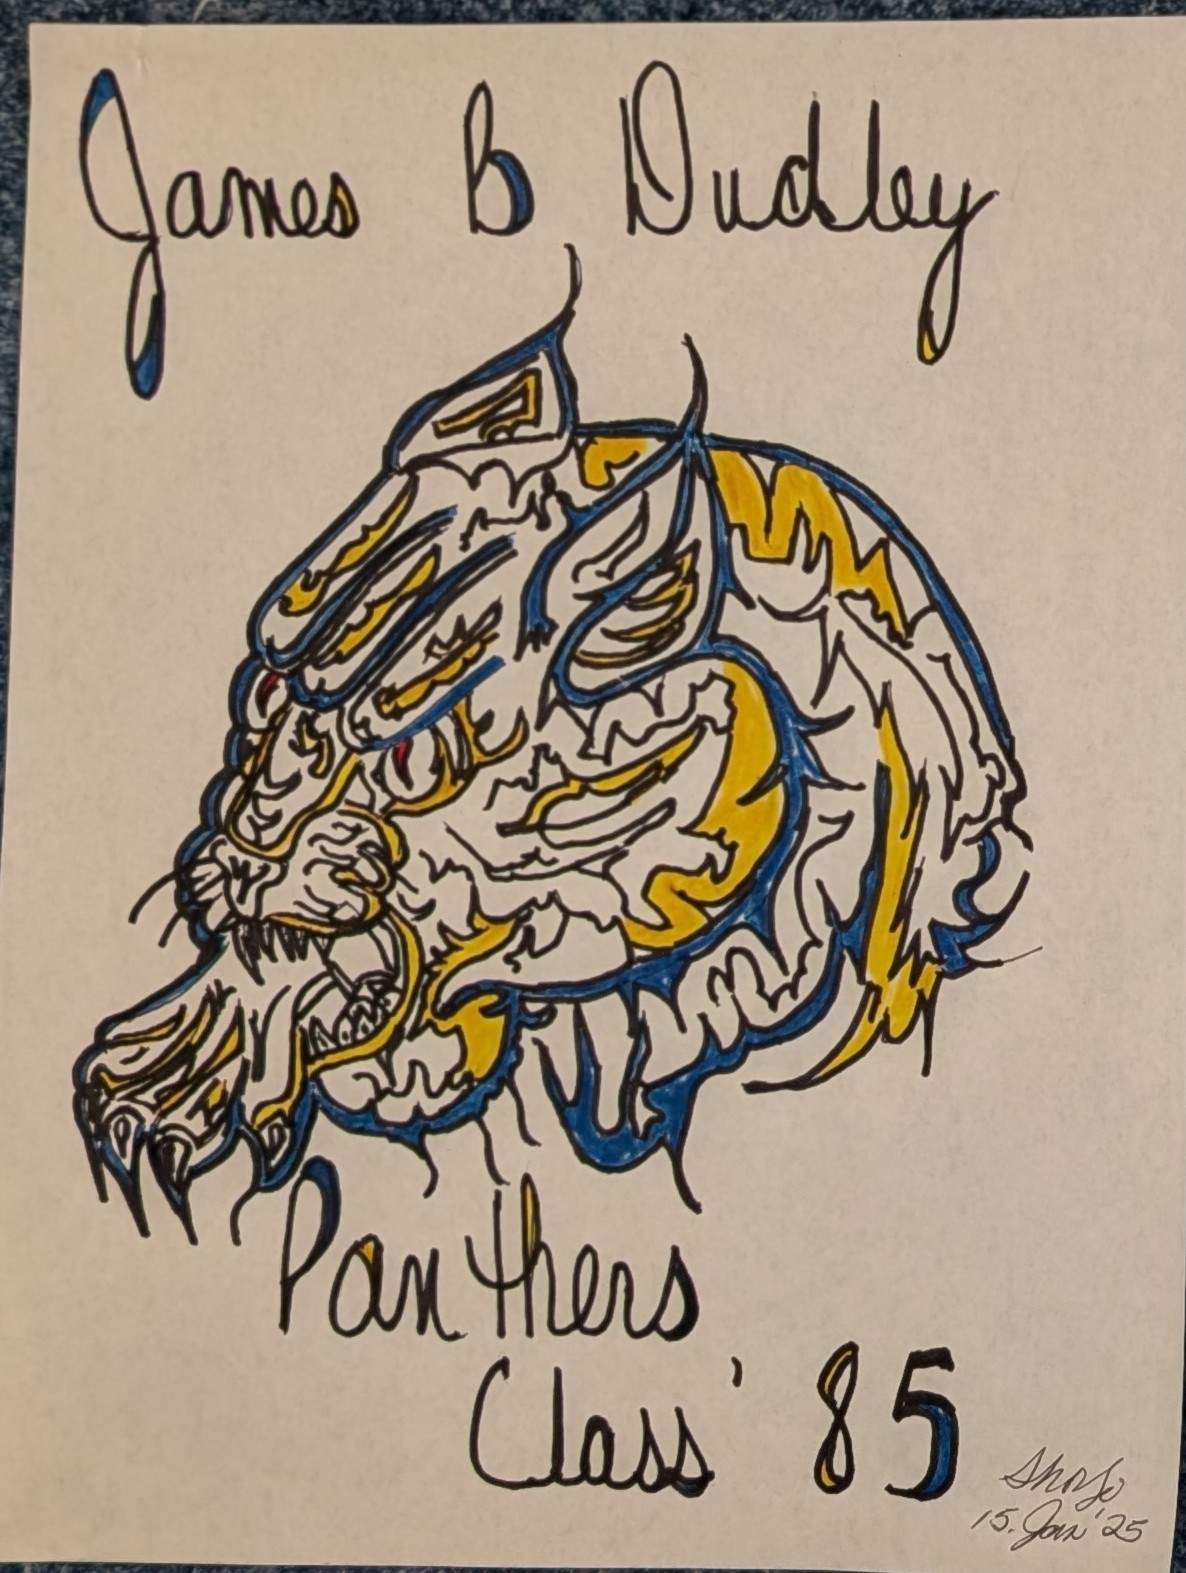 James B Dudley
Panthers
Class '85
15. Jan '25